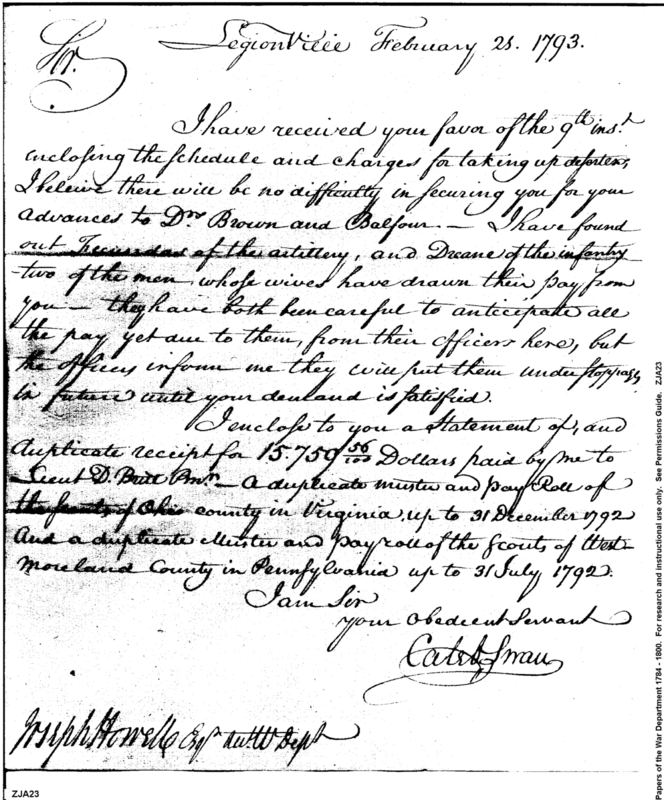 Sir.
Legionville February 21. 1793.
I have received your favor of the 9th inst.
enclosing the schedule and charges for taking up deserters,
I beleive there will be no difficulty in securing you for your
advances to Drs Brown and Balfour. — I have found
out of the artillery, and Dreane of the infantry
two of the men, whose wives have drawn their pay from
you — they have both been careful to anticipate all
the pay yet due to them, from their officers here, but
the officers inform me they will put them under stoppages
in future until your demand is satisfied.
I enclose to you a Statement of, and
duplicate receipt for 15.750 56/100 Dollars paid by me to
Lieut D. Britt Pmr — A duplicate muster and pay Roll of
the scouts of Ohio county in Virginia, up to 31 December 1792
And a duplicate Muster and pay roll of the Scouts of West-
moreland County in Pennsylvania up to 31 July 1792.
I am Sir
your Obedient Servant
Caleb Swan
Joseph Howell Esqr W Dept
ZJA23
Papers of the War Department 1784 - 1800. For research and instructional use only. See Permissions Guide. ZJA23